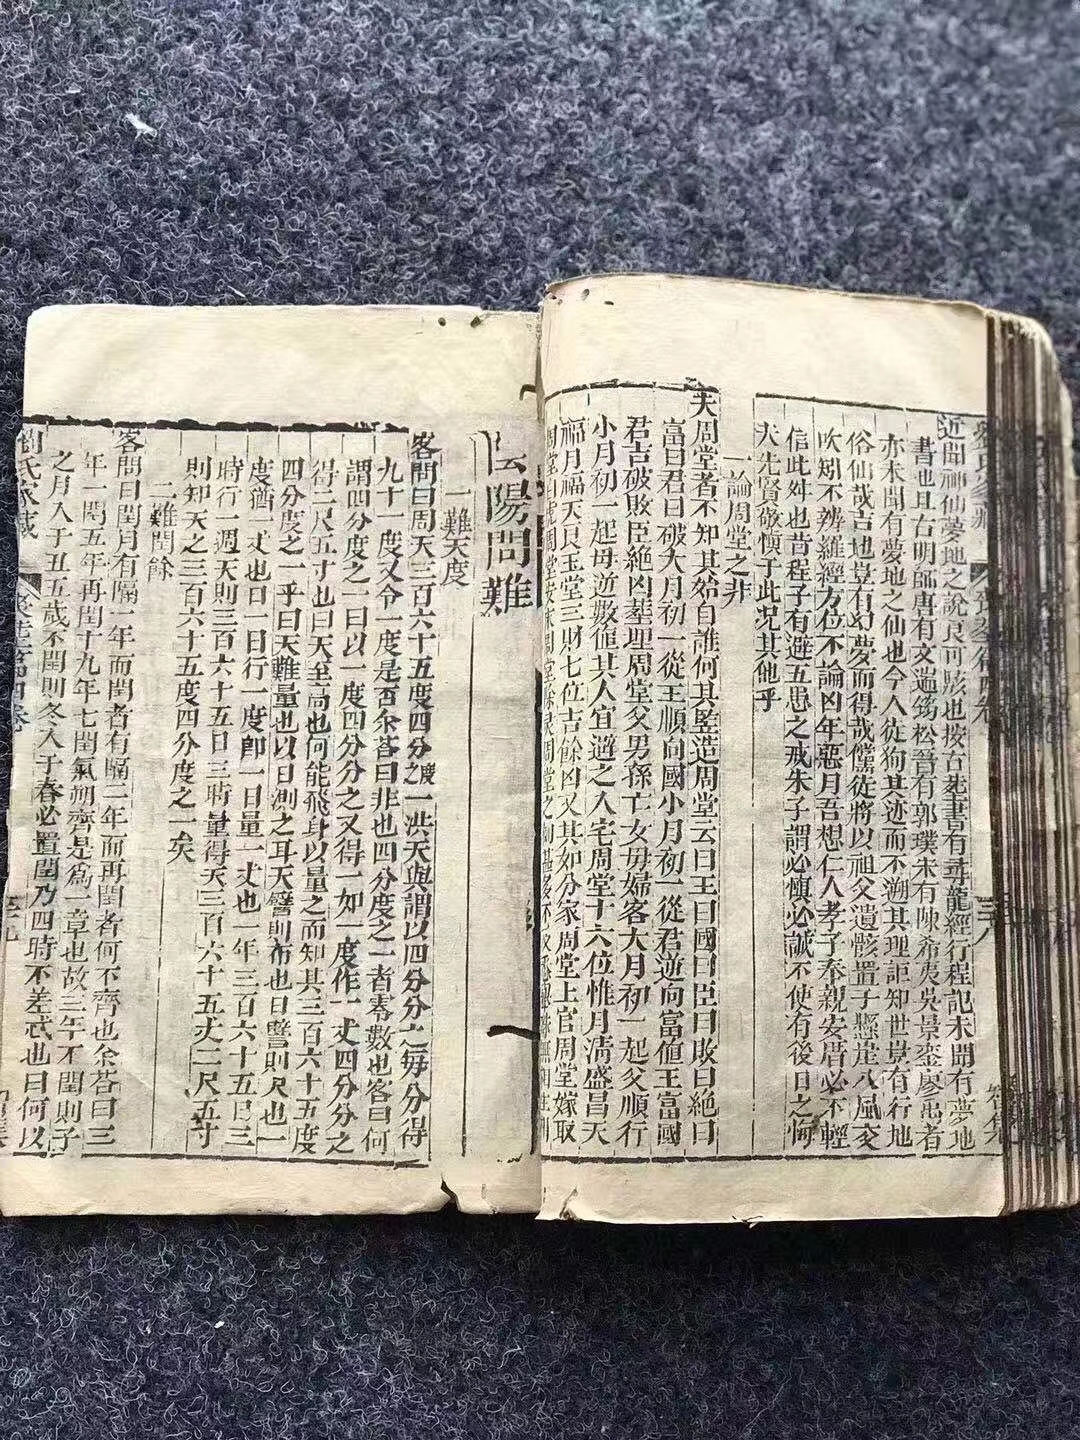 近聞神仙夢地之說良可駭也按古塟書有尋龍經行程記未聞有夢地
書也且古明師唐有文遄筠松晉有郭璞宋有陳希夷吳景鸞廖禹者
亦未聞有夢地之仙也今人從狥其迹而不溯其理詎知世豈有行地
俗仙哉吉地豈有幻夢而得哉儻徙將以祖父遺骸置于懸崖八風交
吹矧不辨羅經方位不論凶年惡月吾想仁人孝子奉親安厝必不輕
信此舛也昔程子有避五患之戒朱子謂必慎必誠不使有後日之悔
夫先賢敬慎于此况其他乎
一論周堂之非
夫周堂者不知其始自誰何其監造周堂云曰王曰國曰臣曰敗曰絕曰
富曰君曰破大月初一從王順向國小月初一從君逆向富値王富國
君吉破敗臣絕凶塟埋周堂父男孫亡女母婦客大月初一起父順行
小月初一起母逆數値其人宜避之入宅周堂十六位惟月淸盛昌天
福月福天艮玉堂三財七位吉餘凶又其如分家周堂上官周堂嫁取
周堂
陰陽問難
一難天度
客問曰周天三百六十五度四分度之一洪天與謂以四分分之每分得
九十一度又令一度是否余答曰非也四分度之一者零數也客曰何
謂四分度之一曰以一度四分分之又得一如一度作一丈四分分之
得二尺五寸也曰天至高也何能飛身以量之而知其三百六十五度
四分度之一乎曰天難量也以日測之耳天譬則布也日譬則尺也一
度猶一丈也日一日行一度卽一日量一丈也一年三百六十五日三
時行一週天則三百六十五日三時量得天三百六十五丈二尺五寸
則知天之三百六十五度四分度之一矣
二難閏餘
客問曰閏月有隔一年而閏者有隔二年而再閏者何不齊也余荅曰三
年一閏五年再閏十九年七閏氣朔齊是爲一章也故三年不閏則子
之月入于丑五歲不閏則冬入于春必置閏乃四時不差忒也曰何以
劉氏家藏
三十九